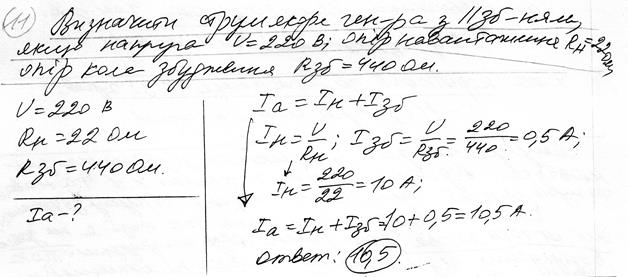 11) Визначити струм якоря ген-ра з ||зб-ням,
якщо напруга U=220 В; опір навантаження Rн=22 Ом,
опір кола збудження Rзб=440 Ом.
U=220 В
Rн=22 Ом
Rзб=440 Ом.
Iа-?
Iа=Iн+Iзб
Iн=U/Rн; Iзб=U/Rзб=220/440=0,5 А;
Iн=220/22=10 А;
Iа=Iн+Iзб=10+0,5=10,5 А.
ответ: 10,5.